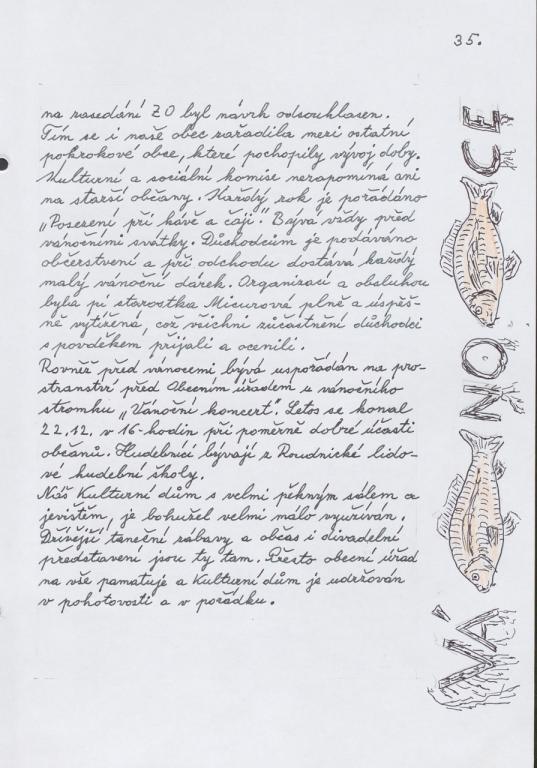 35.
na zasedání ZO byl návrh odsouhlasen.
Tím se i naše obec zařadila mezi ostatní
pokrokové obce, které pochopily vývoj doby.
Kulturní a sociální komise nezapomíná ani
na starší občany. Každý rok je pořádáno
„Posezení při kávě a čaji". Bývá vždy před
vánočními svátky. Důchodcům je podáváno
občerstvení a při odchodu dostává každý
malý vánoční dárek. Organizací a obsluhou
byla pí starostka Micurová plně a úspěš-
ně vytížená, což všichni zúčastnění důchodci
s povděkem přijali a ocenili.
Rovněž před vánocemi bývá uspořádán na pro-
stranství před Obecním úřadem u vánočního
stromku „Vánoční koncert". Letos se konal
22.12. v 16-hodin při poměrně dobré účasti
občanů. Hudebníci bývají z Roudnické lido-
vé hudební školy.
Náš Kulturní dům s velmi pěkným sálem a
jevištěm, je bohužel velmi málo využíván.
Dřívější taneční zábavy a občas i divadelní
představení jsou ty tam. Přesto obecní úřad
na vše pamatuje a Kulturní dům je udržován
v pohotovosti a v pořádku.
VÁNOCE